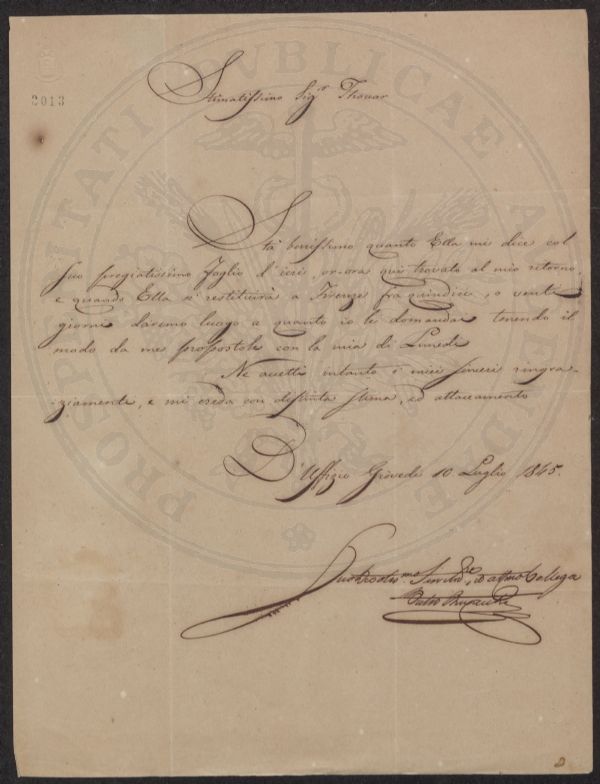 2013
Stimatissimo Sig.r Thouar
Stà benissimo quanto Ella mi dice col
suo pregiatissimo foglio d'ieri, or-ora quì trovato al mio ritorno,
e quando Ella si restituirà a Firenze fra quindici, o venti
giorni daremo luogo a quanto io le domandai tenendo il
modo da me propostole con la mia di Lunedì
Ne accetti intanto i miei sinceri ringra-
ziamenti, e mi creda con distinta stima, ed attaccamento
D'Uffizio Giovedì 10 Luglio 1845.
Suo Devotis.mo Servid.re, ed affmo Collega
PROSPERITATI PUBLICAE AUGENDAE